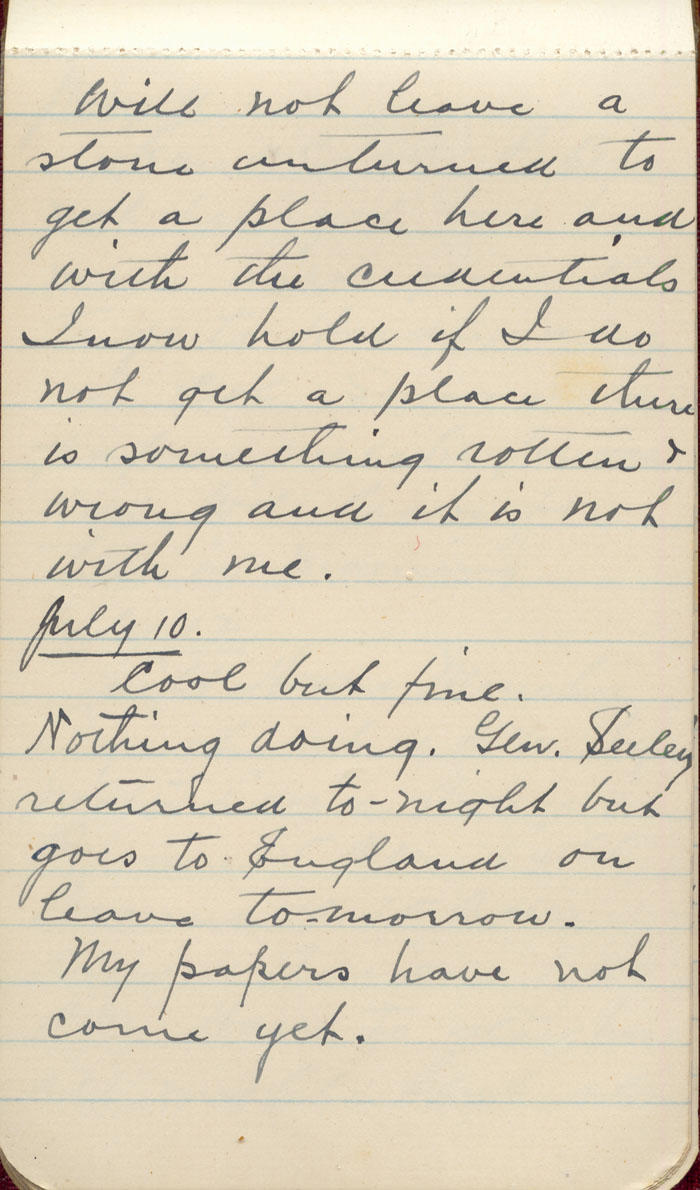 Will not leave a
stone unturned to
get a place here and
with the credentials
I now hold if I do
not get a place there
is something rotten &
wrong and it is not
with me.
July 10.
Cool but fine.
Nothing doing. Gen. Seeley
returned to-night but
goes to England on
leave to-morrow.
My papers have not
come yet.